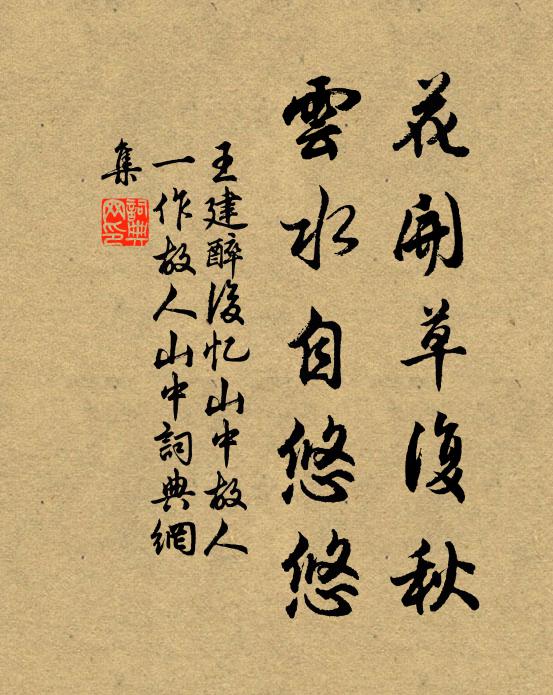 花開草復秋
雲水自悠悠
王建醉後忆山中故人
一作故人山中詞典網
集
詞典
网印